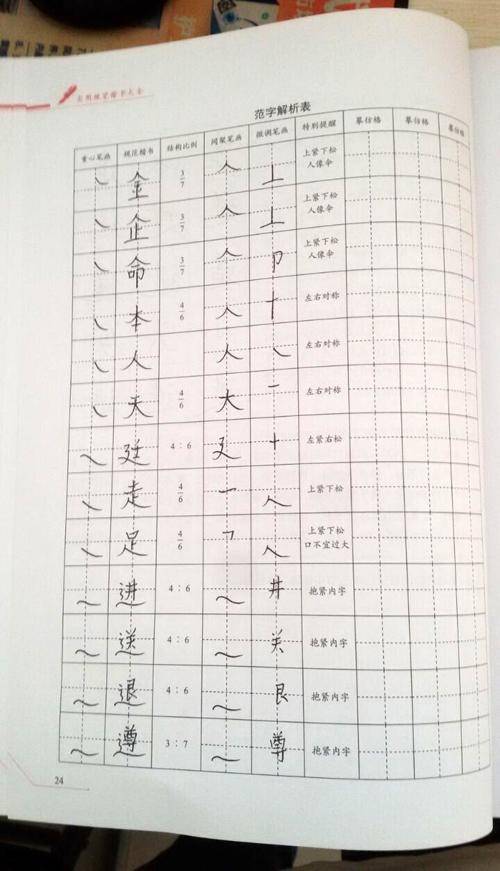 实用规范楷书大全
范字解析表
重心笔画 规范楷书 结构比例 间架笔画 微调笔画 特别提醒 摹仿格 摹仿格 摹仿格
㇏ 金 3/7 人 上 上紧下松 人像伞
㇏ 企 3/7 人 上 上紧下松 人像伞
㇏ 命 3/7 人 卩 上紧下松 人像伞
㇏ 本 4/6 人 十 左右对称
㇏ 人 人 ㇏ 左右对称
㇏ 夫 4/6 大 一 左右对称
㇏ 廷 4:6 廴 十 左紧右松
㇏ 走 4/6 一 人 上紧下松
㇏ 足 4/6 ㇕ 人 上紧下松 口不宜过大
㇏ 进 4:6 ㇏ 井 抱紧内字
㇏ 送 4:6 ㇏ 关 抱紧内字
㇏ 退 4:6 ㇏ 艮 抱紧内字
㇏ 遵 3:7 ㇏ 尊 抱紧内字
24